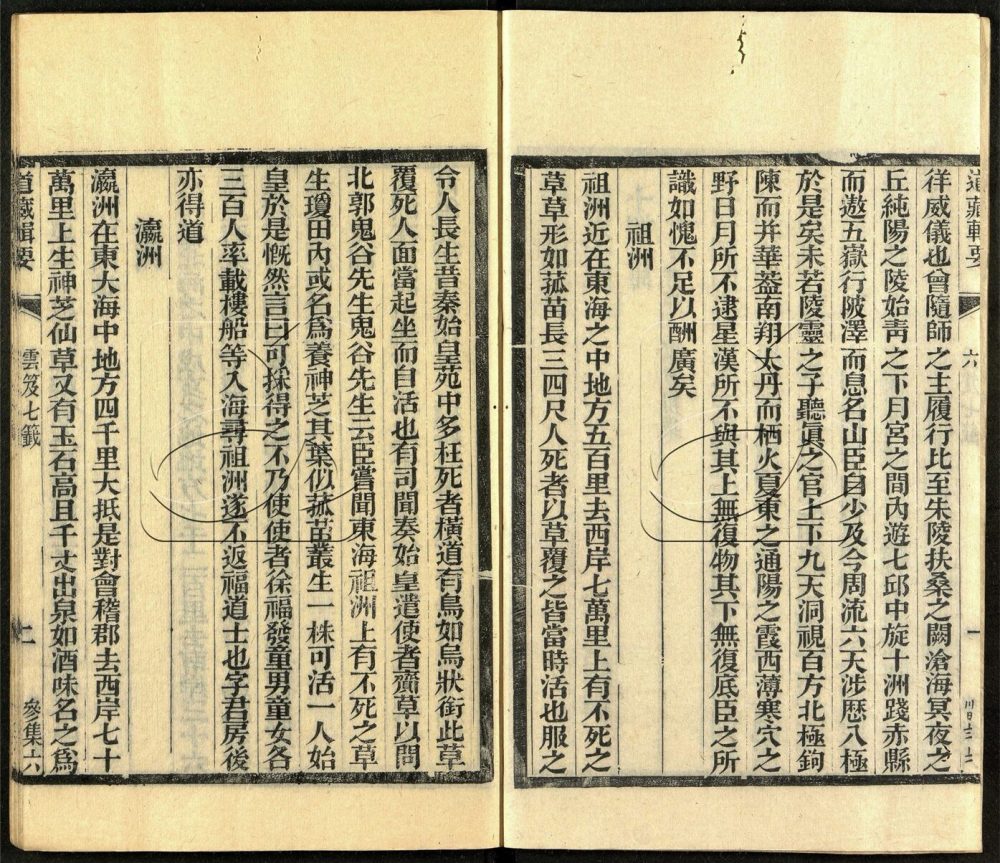 徉威儀也曾隨師之主履行比至朱陵扶桑之闕滄海冥夜之
丘純陽之陵始青之下月宮之間內遊七邱中旋十洲踐赤縣
而遨五嶽行陂澤而息名山臣自少及今周流六天涉歷八極
於是矣未若陵靈之子聽眞之官上下九天洞視百方北極鉤
陳而并華蓋南翔太丹而栖火夏東之通陽之霞西薄寒穴之
野日月所不逮星漢所不與其上無復物其下無復底臣之所
識如愧不足以酬廣矣
祖洲
祖洲近在東海之中地方五百里去西岸七萬里上有不死之
草草形如菰苗長三四尺人死者以草覆之皆當時活也服之
令人長生昔秦始皇苑中多枉死者橫道有鳥如烏狀銜此草
覆死人面當起坐而自活也有司聞奏始皇遣使者齎草以問
北郭鬼谷先生鬼谷先生云臣嘗聞東海祖洲上有不死之草
生瓊田內或名爲養神芝其葉似菰苗叢生一株可活一人始
皇於是慨然言曰可採得之不乃使使者徐福發童男童女各
三百人率載樓船等入海尋祖洲遂不返福道士也字君房後
亦得道
瀛洲
瀛洲在東大海中地方四千里大抵是對會稽郡去西岸七十
萬里上生神芝仙草又有玉石高且千丈出泉如酒味名之爲
道藏輯要
雲笈七籤
二
參集六